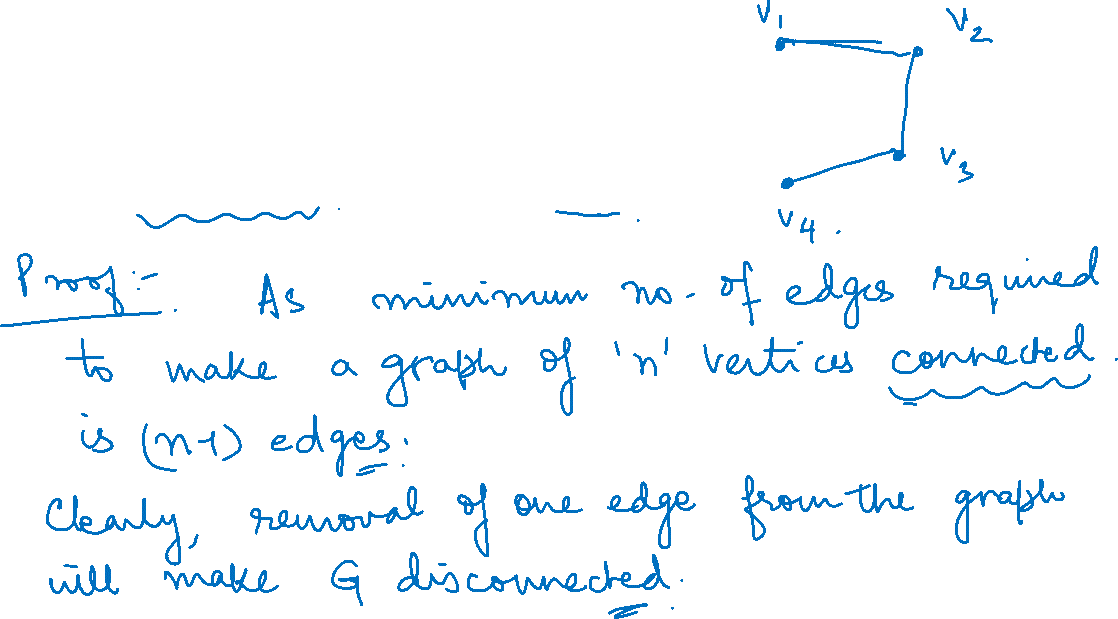 V₁
V₂
V₃
V₄.
Proof:-. As minimum no. of edges required
to make a graph of 'n' vertices connected.
is (n-1) edges.
Clearly, removal of one edge from the graph
will make G disconnected.